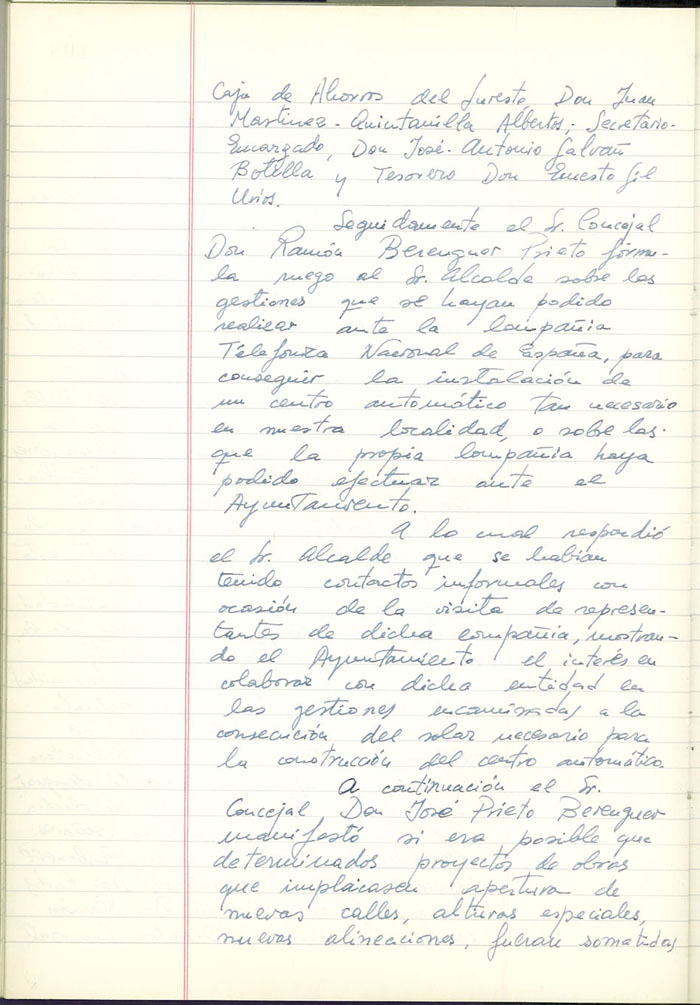 Caja de Ahorros del Sureste, Don Juan
Martinez-Quintanilla Albertos; Secretario-
Encargado, Don José-Antonio Galvañ
Botella y Tesorero Don Ernesto Gil
Urios.
Seguidamente el Sr. Concejal
Don Ramón Berenguer Prieto formu-
la ruego al Sr. Alcalde sobre las
gestiones que se hayan podido
realizar ante la Compañia
Telefonica Nacional de España, para
conseguir la instalación de
un centro automático tan necesario
en nuestra localidad, o sobre las
que la propia Compañia haya
podido efectuar ante el
Ayuntamiento.
A lo cual respondió
el Sr. Alcalde que se habian
tenido contactos informales con
ocasión de la visita de represen-
tantes de dicha compañia, mostran-
do el Ayuntamiento el interés en
colaborar con dicha entidad en
las gestiones encaminadas a la
consecución del solar necesario para
la construcción del centro automático.
A continuación el Sr.
Concejal Don José Prieto Berenguer
manifestó si era posible que
determinados proyectos de obras
que implicasen apertura de
nuevas calles, alturas especiales,
nuevas alineaciones, fueran sometidas